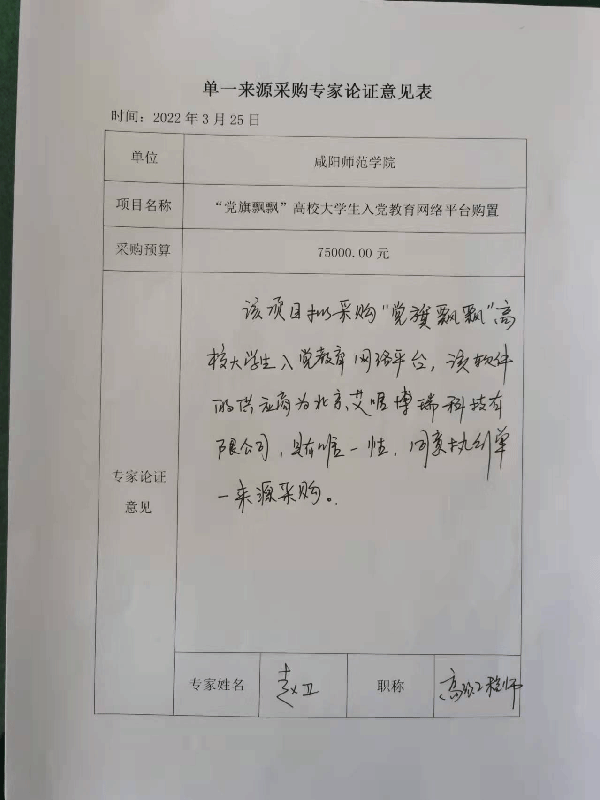 单一来源采购专家论证意见表
时间：2022 年 3 月 25 日
单位 咸阳师范学院
项目名称 “党旗飘飘”高校大学生入党教育网络平台购置
采购预算 75000.00 元
专家论证
意见
该项目拟采购“党旗飘飘”高
校大学生入党教育网络平台，该软件
的供应商为北京艾唯博瑞科技有
限公司，具有唯一性，同意执行单
一来源采购。
专家姓名 赵卫 职称 高级工程师